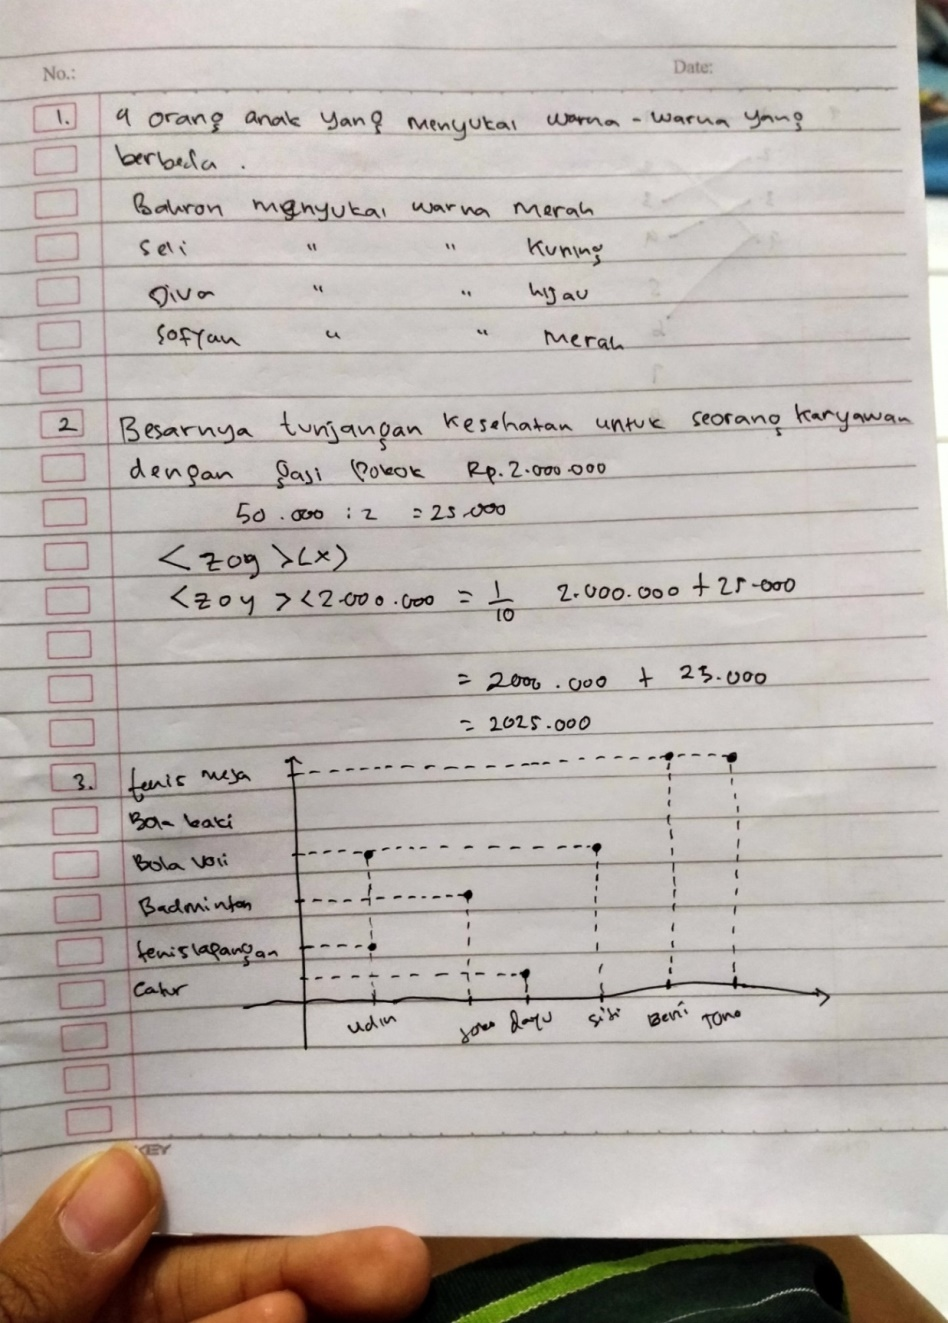 No.: Date:
1. 4 orang anak yang menyukai warna-warna yang
berbeda.
Bahron menyukai warna Merah
Seli " " Kuning
Diva " " hijau
Sofyan " " Merah
2 Besarnya tunjangan kesehatan untuk seorang karyawan
dengan gaji Pokok Rp. 2.000.000
50.000 : 2 = 25.000
<zog>(x)
<zoy><2.000.000 = 1/10 2.000.000 + 25.000
= 2000.000 + 25.000
= 2025.000
3. tenis meja
Bola kaki
Bola voli
Badminton
tenis lapangan
Catur
Udin Joko dayu Siti Beni Tono
KEY